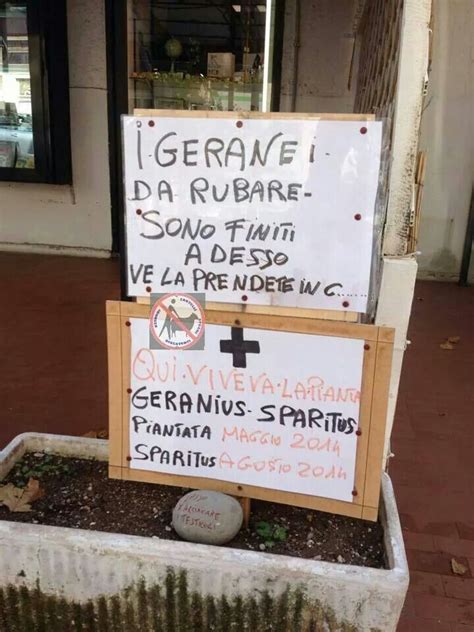 I GERANEI
DA RUBARE-
SONO FINITI
ADESSO
VE LA PRENDETE IN C......
QUI·VIVEVA·LA PIANTA
GERANIUS·SPARITUS
PIANTATA MAGGIO 2014
SPARITUS AGOSTO 2014